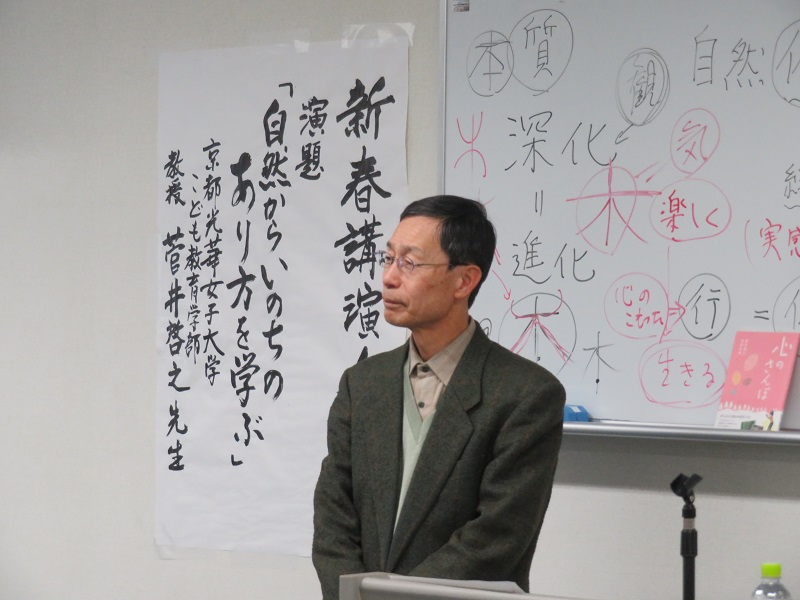 新春講演
演題
「自然からいのちの
あり方を学ぶ」
京都光華女子大学
こども教育学師
教授 菅井啓之先生
本質
観
自然
木
深化
気
本
楽しく
=
(実感
進化
心の
こもった
⇒ 行 =
本
木
生きる
心の
さんぽ